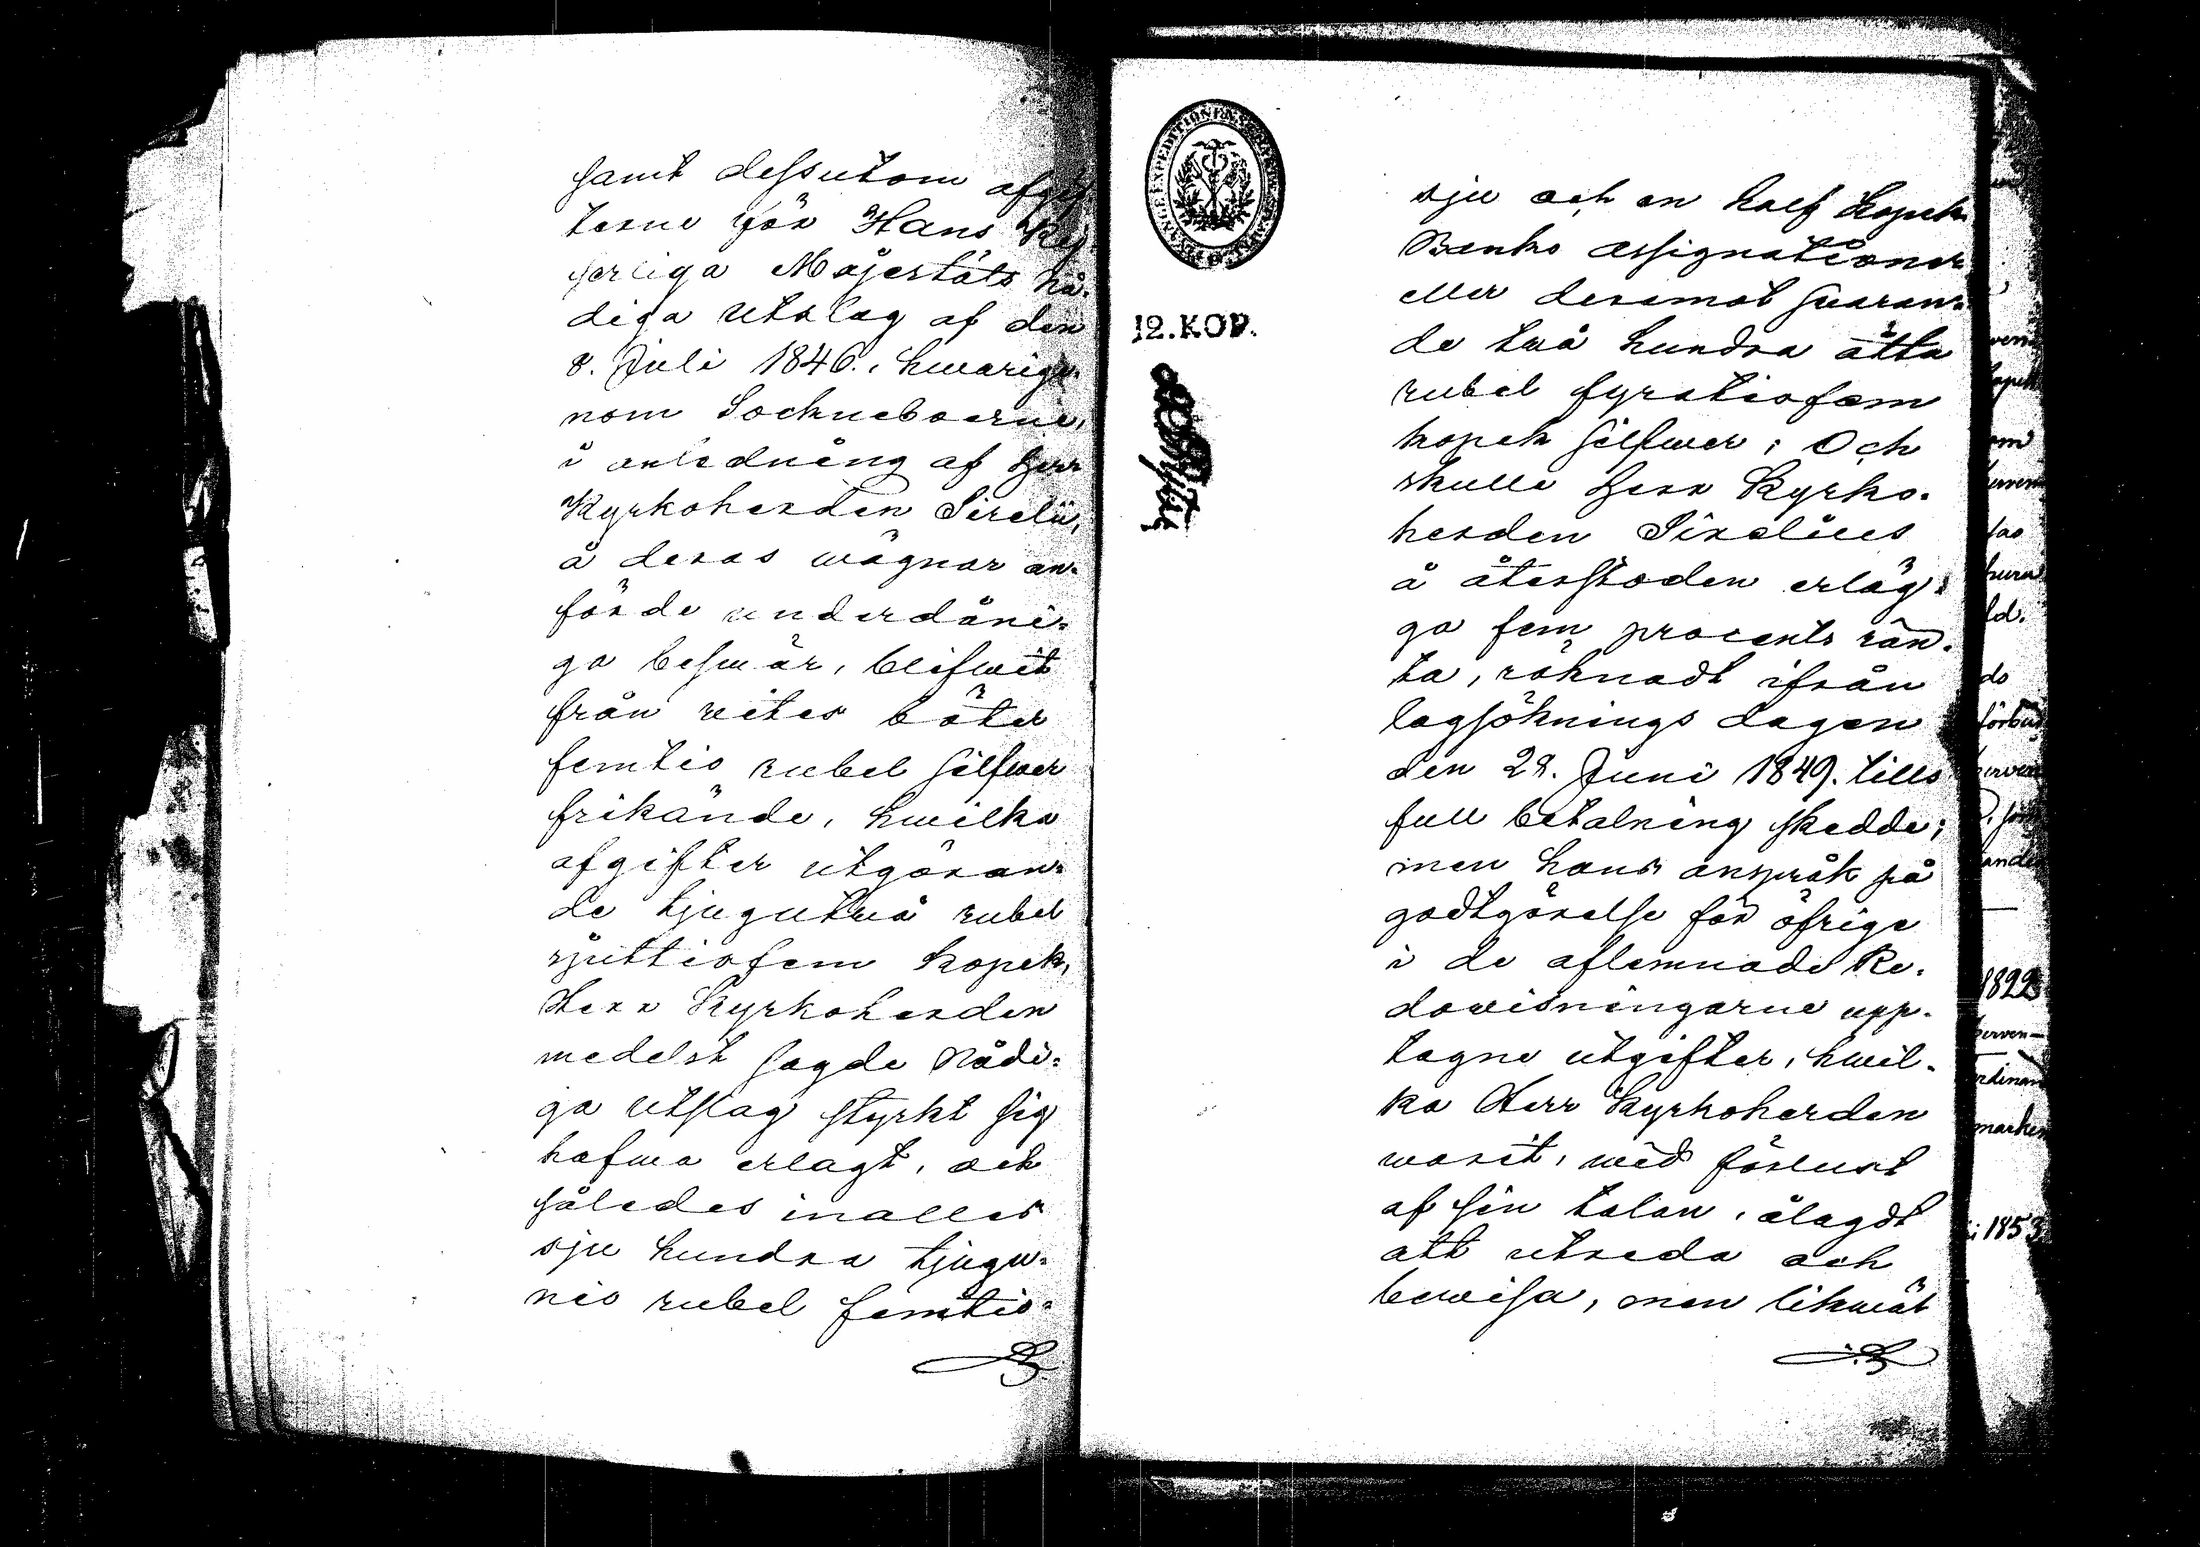 samt dessutom afgif-
terne för Hans Kej-
serliga Majestäts nå-
diga utslag af den
8. Juli 1846., hwarige-
nom Sockneboerne,
i anledning af Herr
Kyrkoherden Sirelii,
å deras wägnar an-
förde underdåni-
ga beswär, blifwit
från wites böter
femtio rubel silfwer
frikände, hwilka
afgifter utgöran-
de tjugutwå rubel
sjuttiofem kopek,
Herr Kyrkoherden
medelst sagde Nådi-
ga utslag styrkt sig
hafwa erlagt, och
således inalles
sju hundra tjugu-
nio rubel femtio-
12.KOP.
sju och en half kopek
Banko assignationer
eller deremot swaran-
de twå hundra åtta
rubel fyratiofem
kopek silfwer; Och
skulle Herr Kyrko-
herden Sirelius
å återstoden erläg-
ga fem procents rän-
ta, räknadt ifrån
lagsöknings dagen
den 28. Juni 1849. tills
full betalning skedde;
men hans anspråk på
godtgörelse för öfrige
i de aflemnade Re-
dowisningarne upp-
tagne utgifter, hwil-
ka Herr Kyrkoherden
warit, wid förlust
af sin talan, ålagdt
att utreda och
bewisa, men likwäl
1822
1853